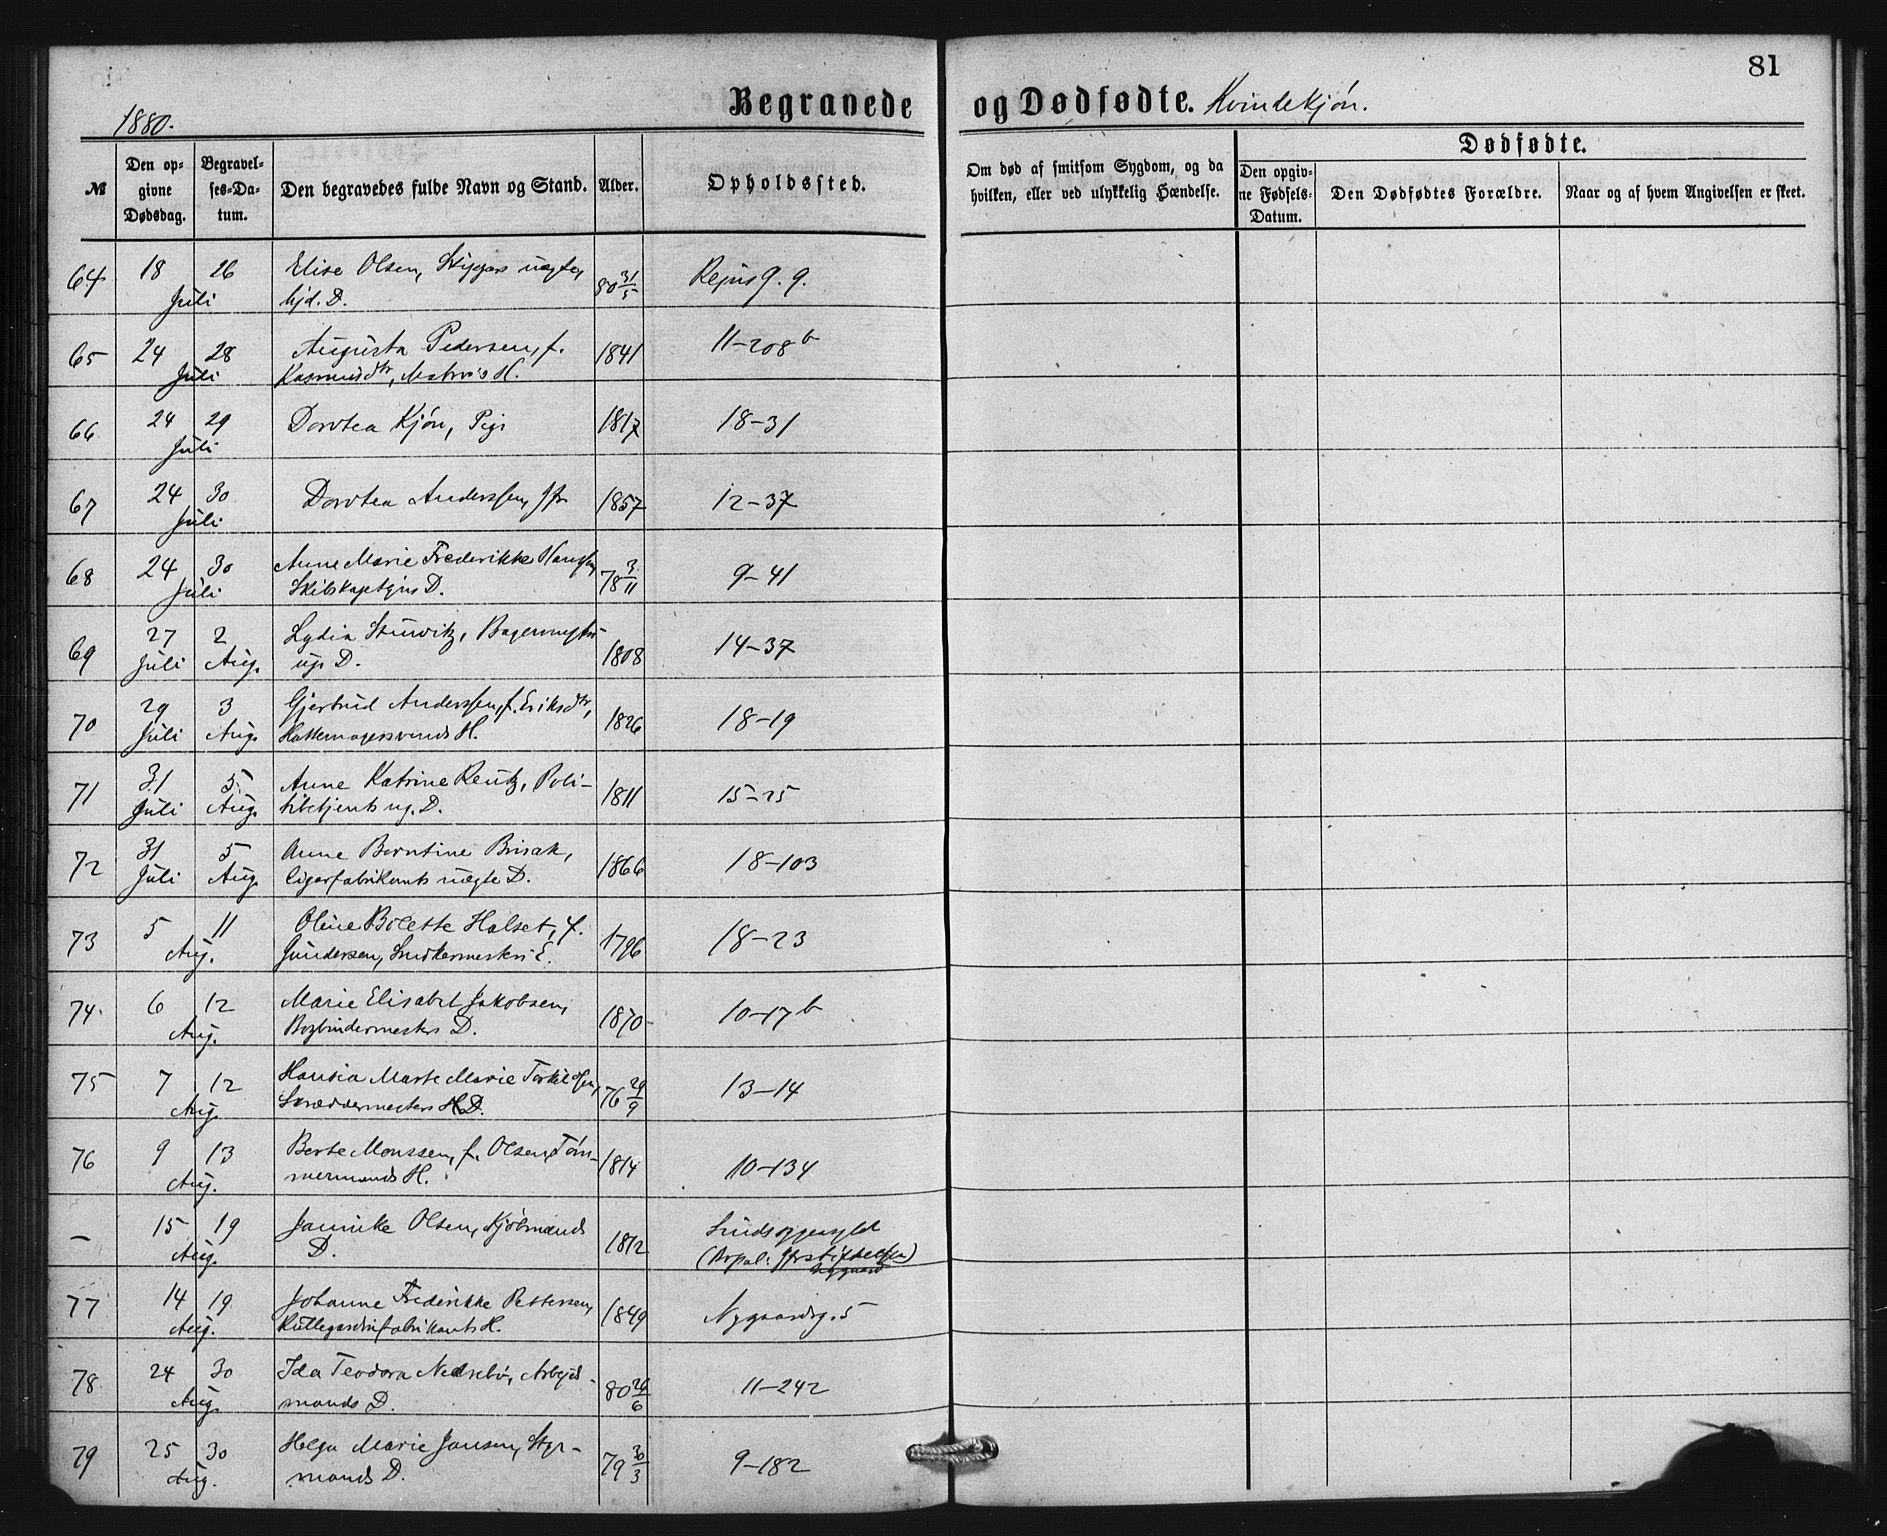 81
1880.
Begravede og Dødfødte. Kvindekjøn.
Dødfødte.
№
Den op-
givne
Dødsdag.
Begravel-
ses-Da-
tum.
Den begravedes fulde Navn og Stand.
Alder.
Opholdssted.
Om død af smitsom Sygdom, og da
hvilken, eller ved ulykkelig Hændelse.
Den opgiv-
ne Fødsels-
Datum.
Den Dødfødtes Forældre.
Naar og af hvem Angivelsen er skeet.
64 18 26 Elise Olsen, Skippers uægte
Juli D. 80 31/5
65 24 28 Augusta Pedersen, f. 1841 11-208 b
Juli Rasmusdtr, Matros H.
66 24 29 Dorotea Kjøn, Pige 1817 18-31
Juli
67 24 30 Dorotea Anderssen, Jfr 1857 12-37
Juli
68 24 30 Anne Marie Frederikke Hanssen,
Juli Skibskaptejns D. 78 3/11 9-41
69 27 2 Lydia
Juli Aug. ug. D. 1808 14-37
70 29 3 Gjertrud Anderssen, f. Eriksdtr,
Juli Aug. Hattemagersvends H. 1826 18-19
71 31 5 Anne Katrine Reutz, Poli-
Juli Aug. tibetjents ug. D. 1811 15-25
72 31 5 Anne Berntine Brisak,
Juli Aug. Cigarfabrikants uægte D. 1866 18-103
73 5 11 Oline Bolette Halset, f.
Aug. Gundersen, Snedkermesters E. 1796 18-23
74 6 12 Marie Elisabet Jakobsen,
Aug. Bogbindermesters D. 1870 10-17 b
75 7 12 Hansia Marte Marie Torkildsen,
Aug. Skræddermesters D. 76 29/9 13-14
76 9 13 Berte Monssen, f. Olsen, Tøm-
Aug. mermands H. 1814 10-134
– 15 19 Jannike Olsen, Kjøbmands
Aug. D. 1812
77 14 19 Johanne Frederikke Pettersen,
Aug. Rullegardinfabrikants H. 1849 Nygaardsg. 5
78 24 30 Ida Teodora Nedrebø, Arbejds-
Aug. mands D. 80 26/6 11-242
79 25 30 Helga Marie Jansen, Styr-
Aug. mands D. 79 30/3 9-182